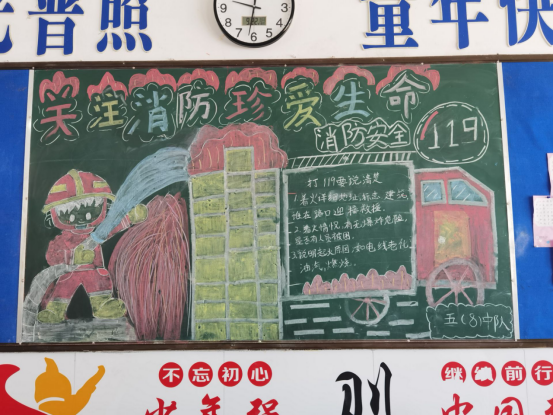 光普照
童年快
关注消防珍爱生命
消防安全
119
打119要说清楚
1.着火详细地址,标志,建筑,
谁在路口迎接救援
2.着火情况,有无爆炸危险,
是否有人员被困。
3.说明起火原因,如电线老化,
油,气,爆炸.
五(8)中队
不忘初心
继续前行
少年强 则 中国